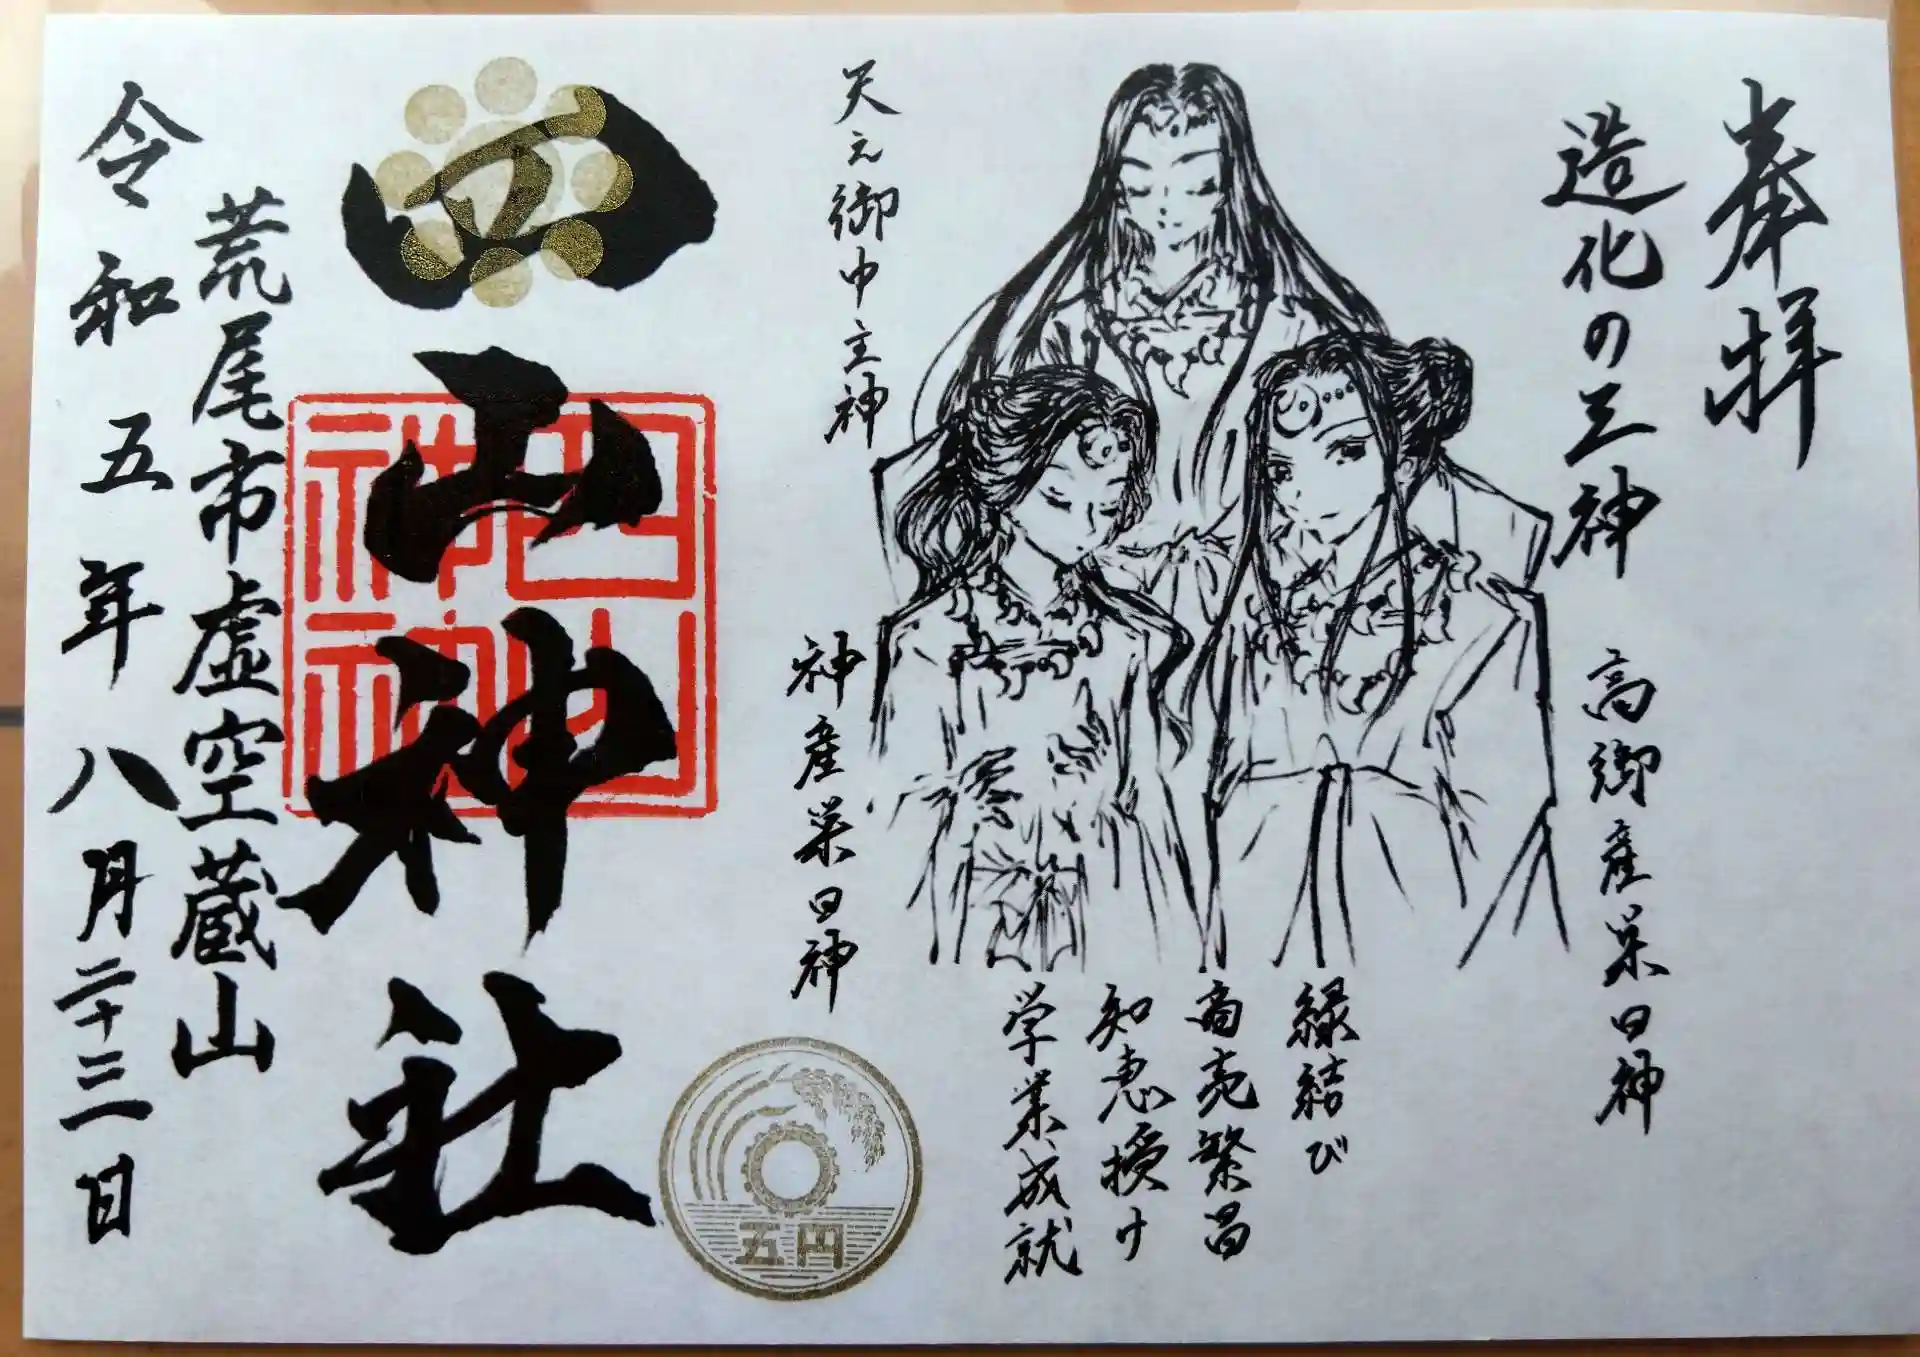 奉拝
造化の三神
高御産巣日神
天之御中主神
神産巣日神
縁結び
商売繁昌
知恵授け
学業成就
五円
四山神社
四山神社
荒尾市虚空蔵山
令和五年八月二十三日